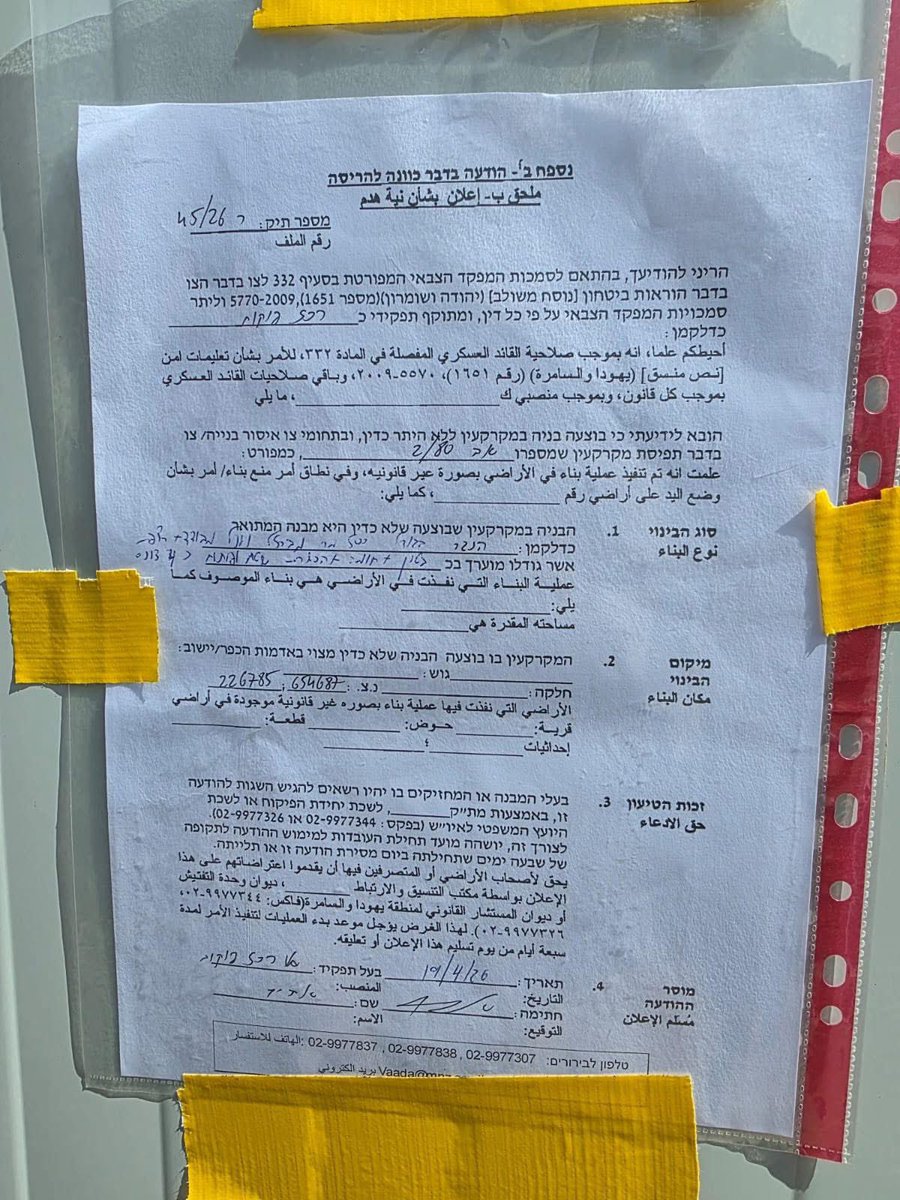 נספח ב'- הודעה בדבר כוונה להריסה
ملحق ب- إعلان بشأن نية هدم
מספר תיק: ר 45/26
رقم الملف
הריני להודיעך, בהתאם לסמכות המפקד הצבאי המפורטת בסעיף 332 לצו בדבר הצו
בדבר הוראות ביטחון [נוסח משולב] (יהודה ושומרון)(מספר 1651), 5770-2009 וליתר
סמכויות המפקד הצבאי על פי כל דין, ומתוקף תפקידי כ רכז פיקוח
כדלקמן:
أحيطكم علما، انه بموجب صلاحية القائد العسكري المفصلة في المادة ٣٣٢، للأمر بشأن تعليمات امن
[نص منسق] (يهودا والسامرة) (رقم ١٦٥١)، ٥٥٧٠-٢٠٠٩، وباقي صلاحيات القائد العسكري
بموجب كل قانون، وبموجب منصبي ك ، ما يلي
הובא לידיעתי כי בוצעה בניה במקרקעין ללא היתר כדין, ובתחומי צו איסור בנייה/ צו
בדבר תפיסת מקרקעין שמספרו אב 2/80, כמפורט:
علمت انه تم تنفيذ عملية بناء في الأراضي بصورة غير قانونيه، وفي نطاق أمر منع بناء/ أمر بشأن
وضع اليد على أراضي رقم ، كما يلي:
1. סוג הבינוי הבניה במקרקעין שבוצעה שלא כדין היא מבנה המתואר
نوع البناء כדלקמן:
אשר גודלו מוערך בכ
عملية البناء التي نفذت في الأراضي هي بناء الموصوف كما
يلي:
مساحته المقدرة هي
2. מיקום המקרקעין בו בוצעה הבניה שלא כדין מצוי באדמות הכפר/יישוב:
הבינוי גוש:
مكان البناء חלקה: נ.צ.: 226785; 654687
الأراضي التي نفذت فيها عملية بناء بصوره غير قانونية موجودة في أراضي
قرية: حوض: قطعة:
إحداثيات ؛
3. זכות הטיעון בעלי המבנה או המחזיקים בו יהיו רשאים להגיש השגות להודעה
حق الادعاء זו, באמצעות מת"ק , לשכת יחידת הפיקוח או לשכת
היועץ המשפטי לאיו"ש (בפקס: 02-9977344 או 02-9977326).
לצורך זה, יושהה מועד תחילת העבודות למימוש ההודעה לתקופה
של שבעה ימים שתחילתה ביום מסירת הודעה זו או תלייתה.
يحق لأصحاب الأراضي أو المتصرفين فيها أن يقدموا اعتراضاتهم على هذا
الإعلان بواسطة مكتب التنسيق والارتباط ، ديوان وحدة التفتيش
أو ديوان المستشار القانوني لمنطقة يهودا والسامرة(فاكس: ٩٩٧٧٣٤٤-٠٢،
٩٩٧٧٣٢٦-٠٢). لهذا الغرض يؤجل موعد بدء العمليات لتنفيذ الأمر لمدة
سبعة أيام من يوم تسليم هذا الإعلان أو تعليقه.
4. מוסר תאריך: 19/4/26 בעל תפקיד: רכז פיקוח
ההודעה التاريخ: المنصب:
مُسلم الإعلان חתימה: שם:
التوقيع: الاسم:
טלפון לבירורים: 02-9977837 , 02-9977838 , 02-9977307 الهاتف للاستفسار:
بريد الكتروني